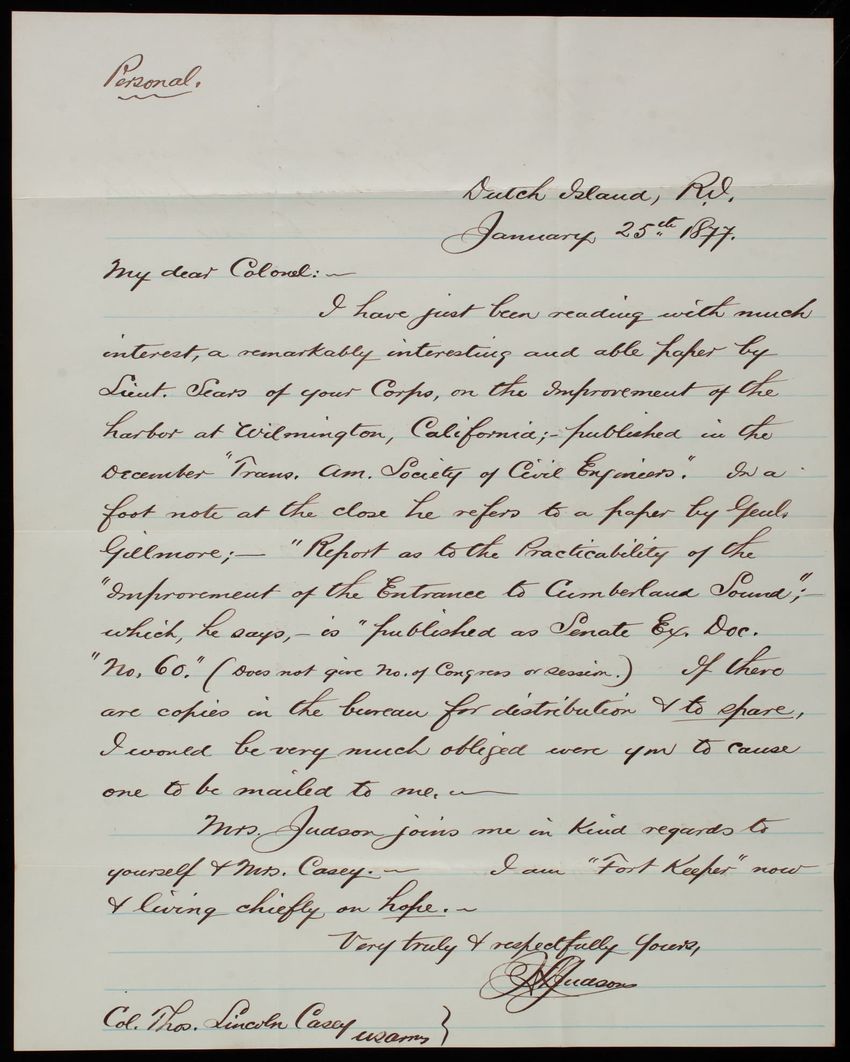 Personal.
Dutch Island, R.I.
January 25th 1877.
My dear Colonel:—
I have just been reading with much
interest, a remarkably interesting and able paper by
Lieut. Sears of your Corps, on the Improvement of the
harbor at Wilmington, California;- published in the
December "Trans. Am. Society of Civil Engineers". In a
foot note at the close he refers to a paper by Genl.
Gillmore;— "Report as to the Practicability of the
"Improvement of the Entrance to Cumberland Sound";—
which, he says,- is "published as Senate Ex. Doc.
"No. 60." (Does not give No. of Congress or session.) If there
are copies in the bureau for distribution & to spare,
I would be very much obliged were you to cause
one to be mailed to me.—
Mrs. Judson joins me in kind regards to
yourself & Mrs. Casey.— I am "Fort Keeper" now
& living chiefly on hope.~
Very truly & respectfully yours,
Judson
Col. Thos. Lincoln Casey }